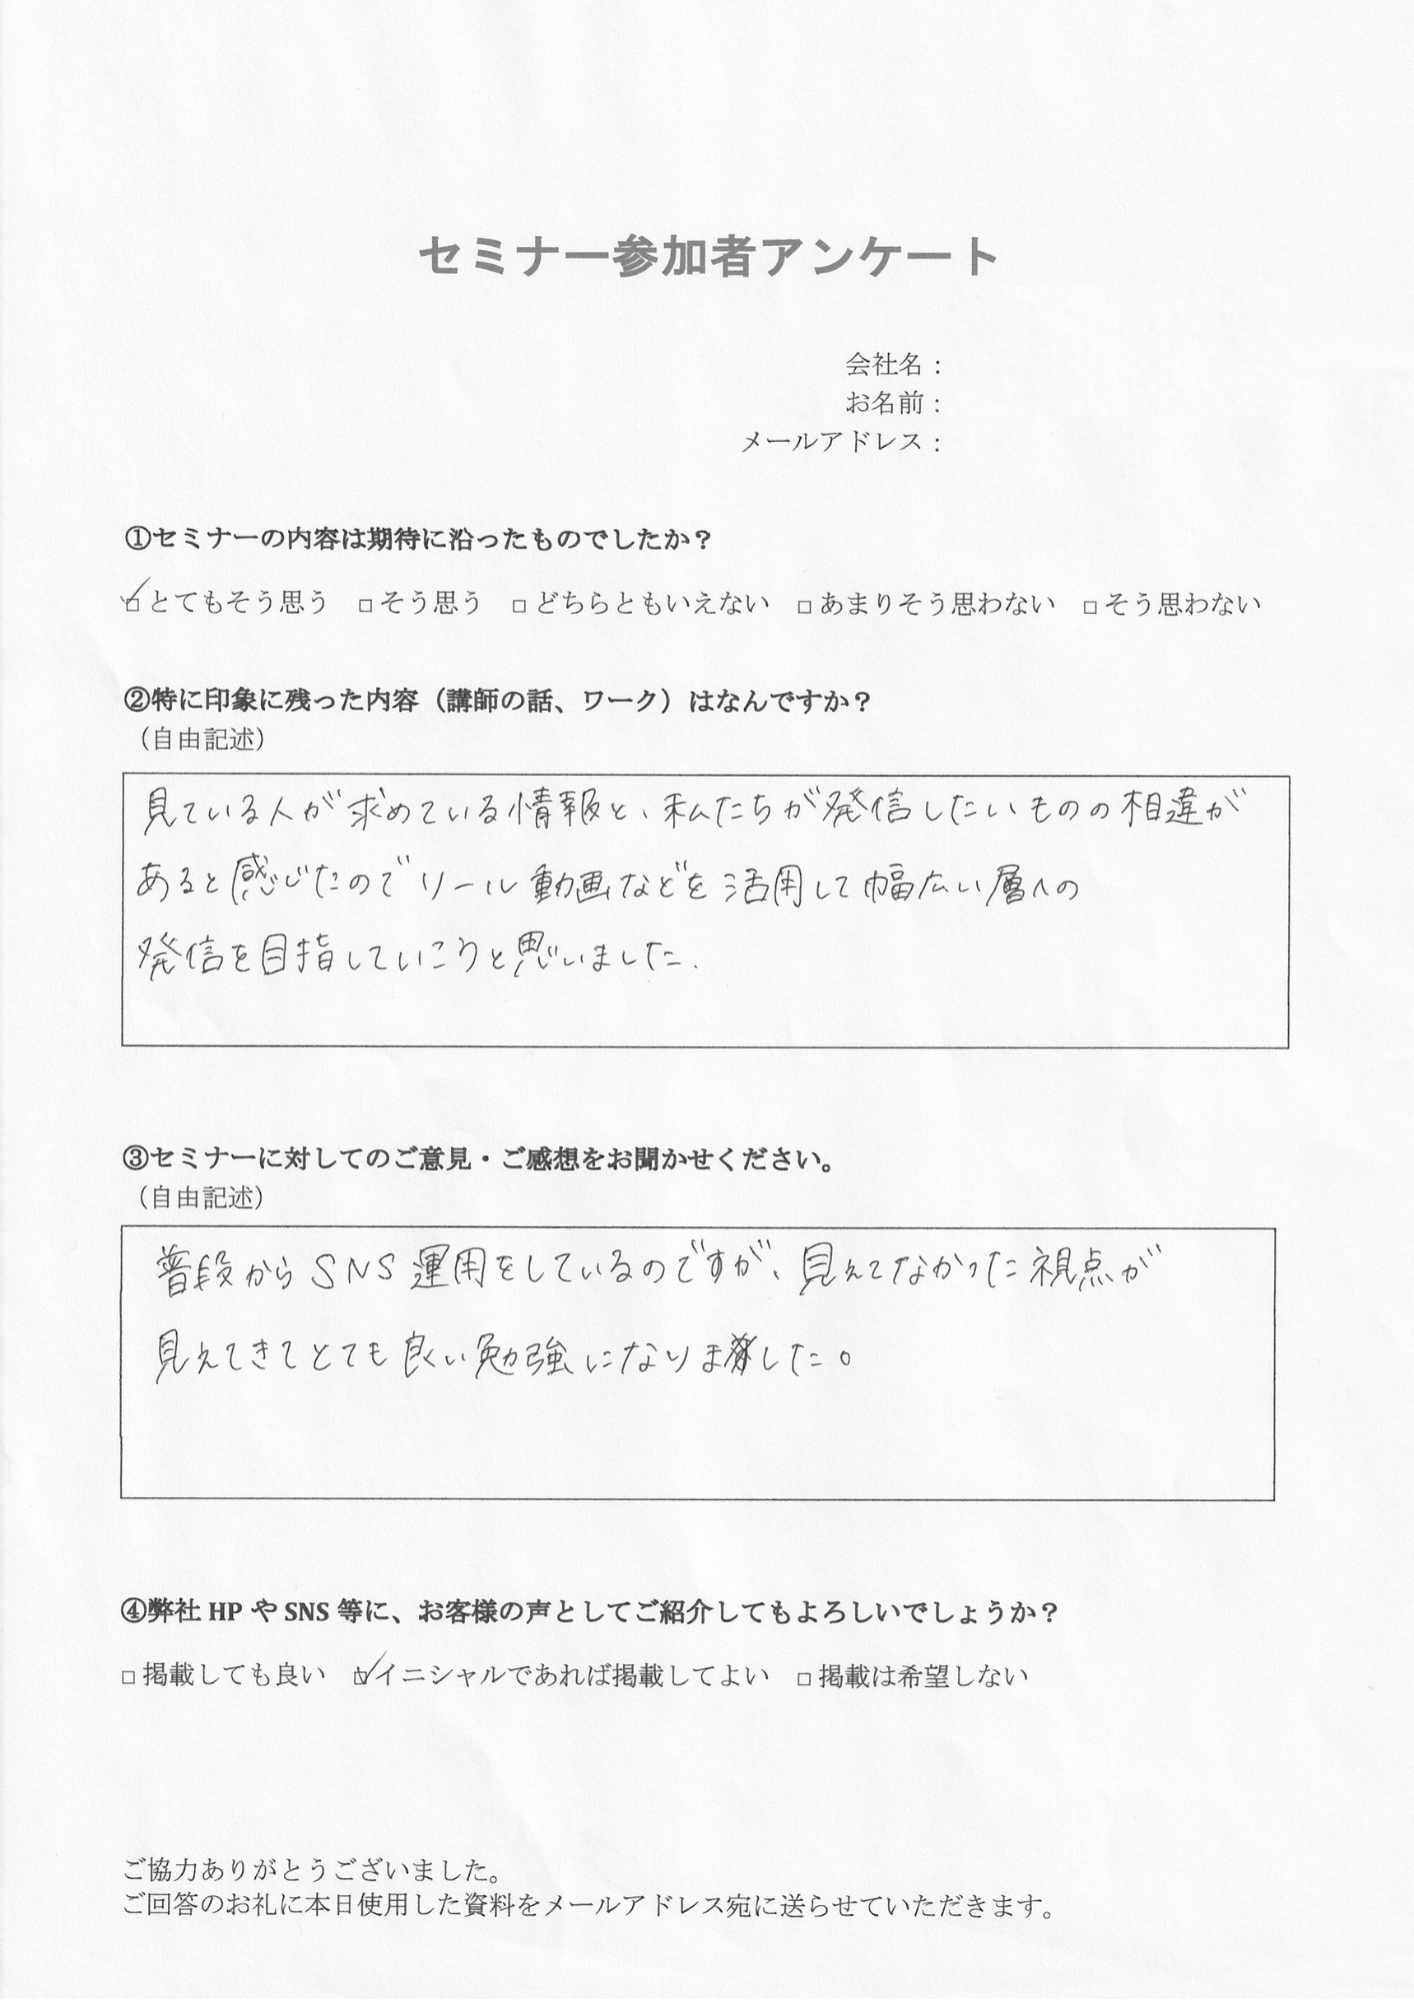 セミナー参加者アンケート
会社名：
お名前：
メールアドレス：
①セミナーの内容は期待に沿ったものでしたか？
☑とてもそう思う □そう思う □どちらともいえない □あまりそう思わない □そう思わない
②特に印象に残った内容（講師の話、ワーク）はなんですか？
（自由記述）
見ている人が求めている情報と、私たちが発信したいものの相違が
あると感じたのでリール動画などを活用して幅広い層への
発信を目指していこうと思いました.
③セミナーに対してのご意見・ご感想をお聞かせください。
（自由記述）
普段からSNS運用をしているのですが、見えてなかった視点が
見えてきてとても良い勉強になりました。
④弊社 HP や SNS 等に、お客様の声としてご紹介してもよろしいでしょうか？
□掲載しても良い ☑イニシャルであれば掲載してよい □掲載は希望しない
ご協力ありがとうございました。
ご回答のお礼に本日使用した資料をメールアドレス宛に送らせていただきます。